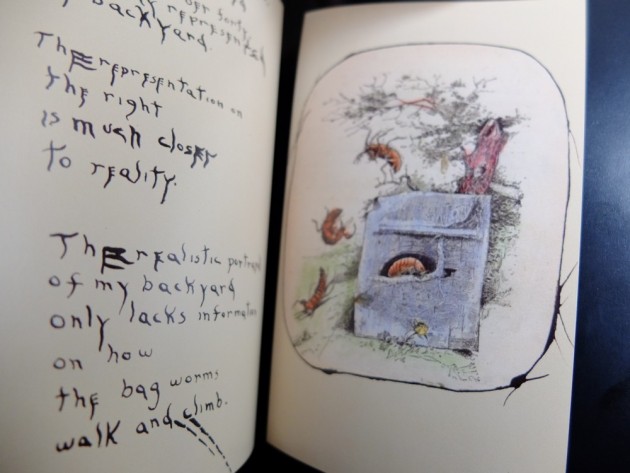 backyard.
The representation on
the right
is much closer
to reality.
The realistic portrayal
of my backyard
only lacks information
on how
the bag worms
walk and climb.